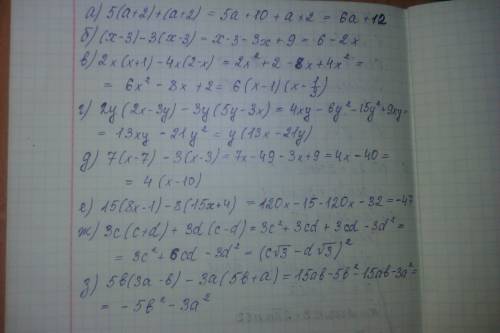 а) 5(a+2)+(a+2) = 5a+10+a+2 = 6a+12
б) (x-3)-3(x-3) = x-3-3x+9 = 6-2x
в) 2x(x+1)-4x(2-x) = 2x²+2-8x+4x² =
= 6x²-8x+2 = 6(x-1)(x-1/3)
г) 2y(2x-3y)-3y(5y-3x) = 4xy-6y²-15y²+9xy=
= 13xy-21y² = y(13x-21y)
д) 7(x-7)-3(x-3) = 7x-49-3x+9 = 4x-40 =
= 4(x-10)
е) 15(8x-1)-8(15x+4) = 120x-15-120x-32 = -47
ж) 3c(c+d)+3d(c-d) = 3c²+3cd+3cd-3d² =
= 3c²+6cd-3d² = (c√3-d√3)²
з) 5b(3a-b)-3a(5b+a) = 15ab-5b²-15ab-3a² =
= -5b²-3a²